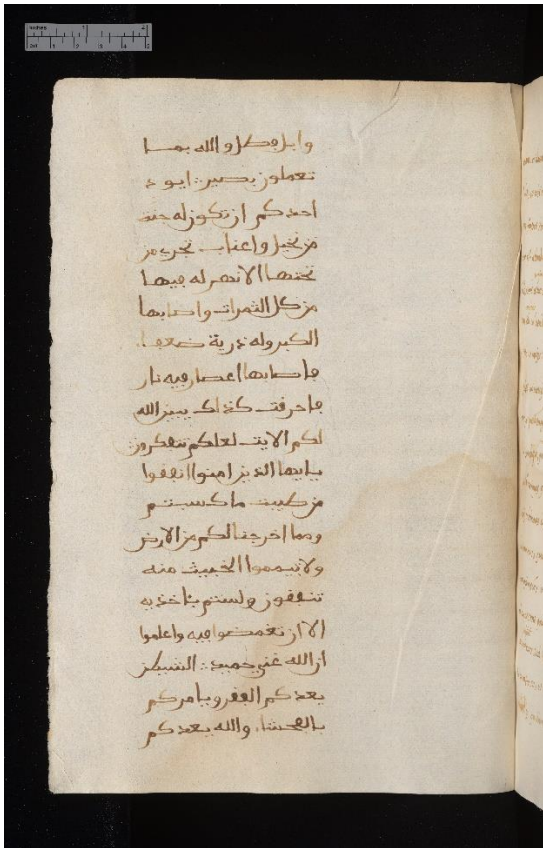 وابل فطل والله بما
تعملون بصير ايود
احدكم ان تكون له جنة
من نخيل واعناب تجري من
تحتها الانهر له فيها
من كل الثمرات واصابها
الكبر وله ذرية ضعفاء
فاصابها اعصار فيه نار
فاحرقت كذلك يبين الله
لكم الايت لعلكم تتفكرون
يايها الذين امنوا انفقوا
من طيبت ما كسبتم
ومما اخرجنا لكم من الارض
ولا تيمموا الخبيث منه
تنفقون ولستم باخذيه
الا ان تغمضوا فيه واعلموا
ان الله غني حميد الشيطن
يعدكم الفقر ويامركم
بالفحشاء والله يعدكم